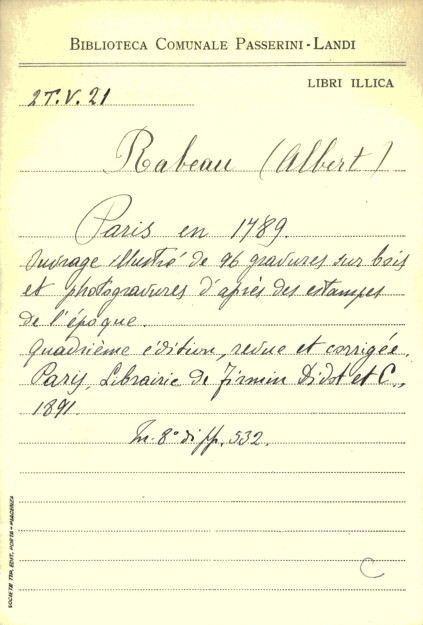 BIBLIOTECA COMUNALE PASSERINI-LANDI
LIBRI ILLICA
2T.V.21
Rabeau (Albert)
Paris en 1789.
Ouvrage illustré de 96 gravures sur bois
et photogravures d'après des estampes
de l'époque.
Quadrième édition, revue et corrigée.
Paris, Librairie de Firmin Didot et C.,
1891.
In-8° di pp. 532.
C
SOCIETÀ TIP. EDIT. PORTA - PIACENZA